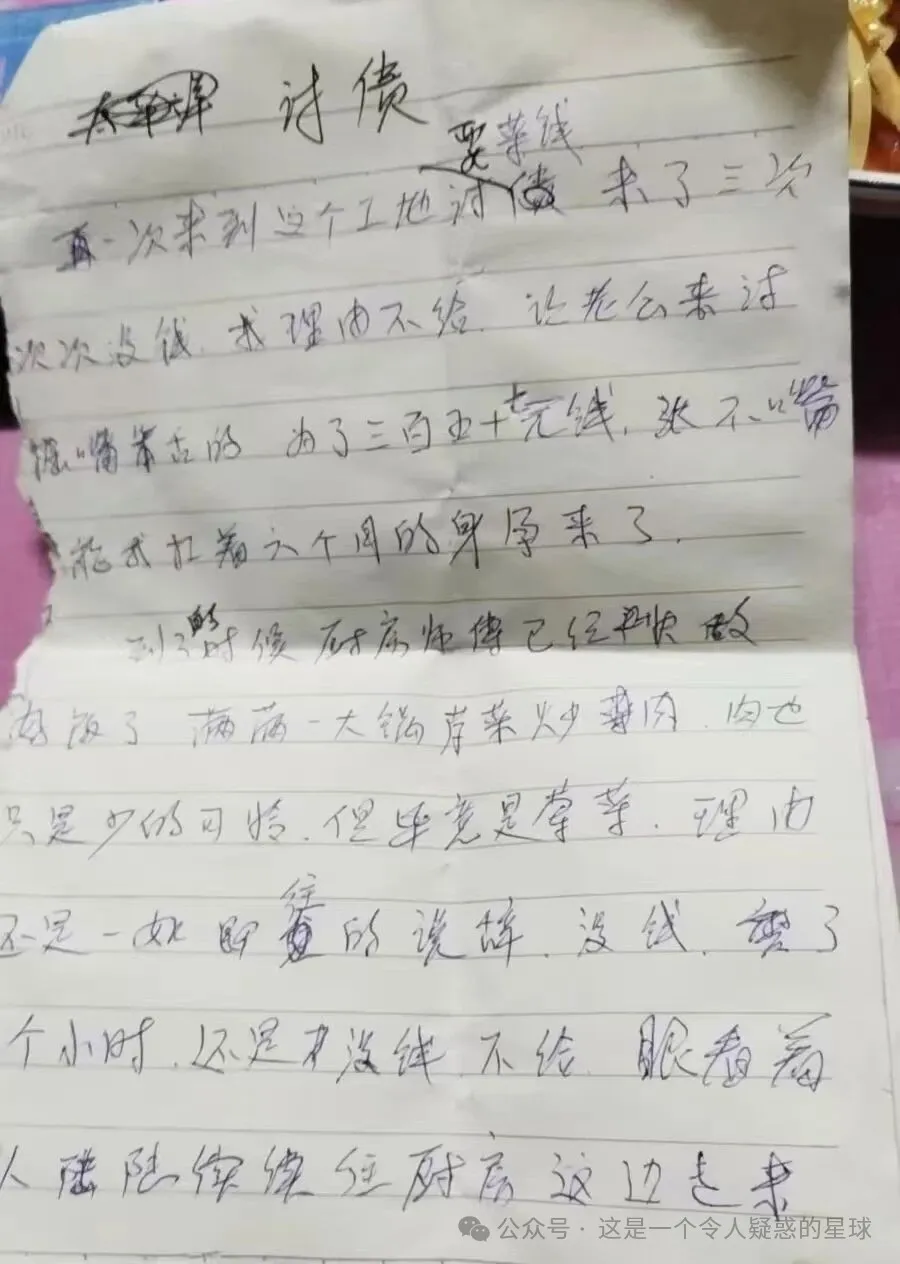 讨债
要菜钱
再一次来到这个工地 来了三次
次次没钱.找理由不给.让老公来讨
嘴笨舌的 为了三百五十七元钱.张不嘴
我扛着六个月的身孕来了.
到了的时候厨房师傅已经快做
饭了 满满一大锅芹菜炒荤肉.肉也
只是少的可怜.但毕竟是荤菜.理由
还是一如即往的说辞.没钱. 了
个小时.还是没钱 不给.眼看着
人陆陆续续往厨房这边走来
公众号·这是一个令人疑惑的星球